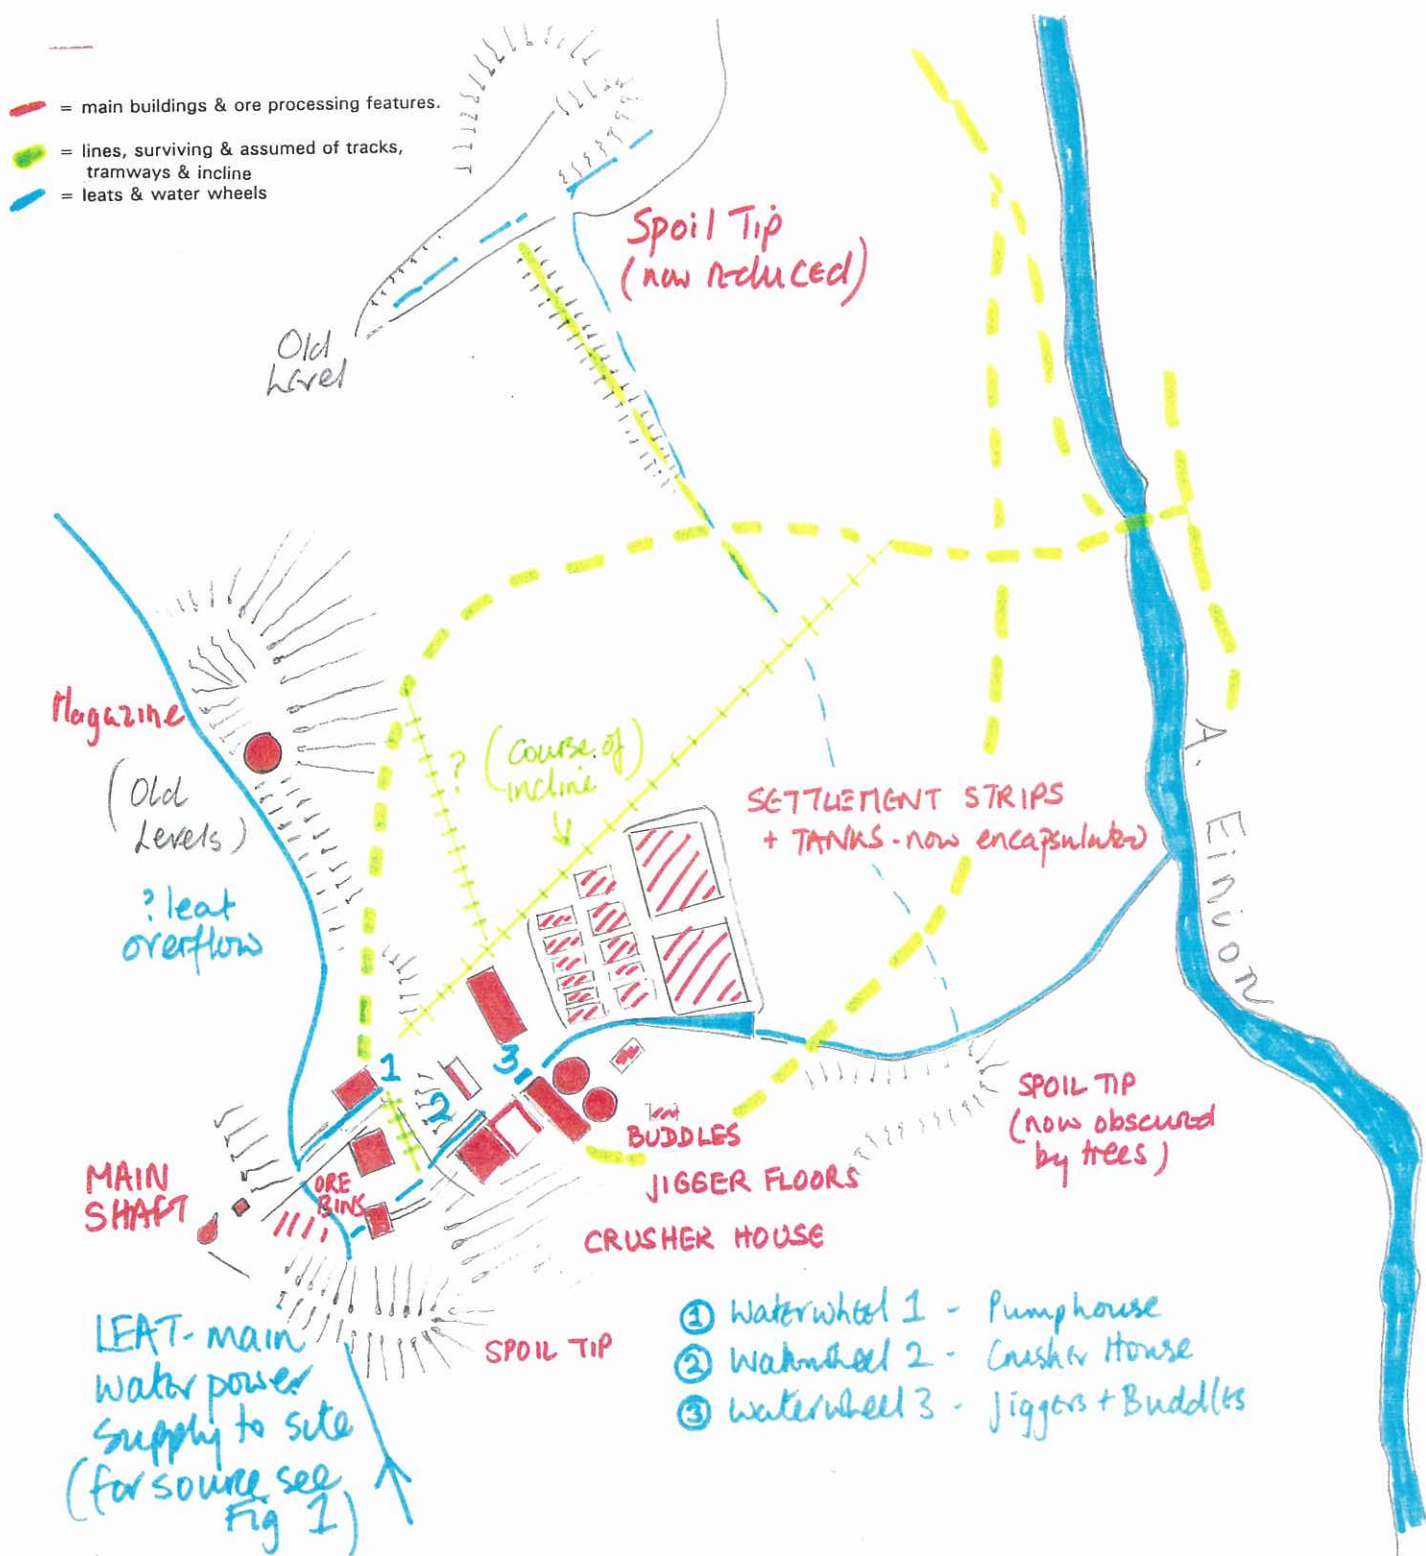 = main buildings & ore processing features.
= lines, surviving & assumed of tracks,
tramways & incline
= leats & water wheels
Spoil Tip
(now reduced)
Old
Level
Magazine
(Old
Levels)
? leat
overflow
? (Course of)
incline
SETTLEMENT STRIPS
+ TANKS - now encapsulated
A. Einion
1
2
3
MAIN
SHAFT
ORE
BINS
BUDDLES
JIGGER FLOORS
CRUSHER HOUSE
SPOIL TIP
(now obscured
by trees)
SPOIL TIP
LEAT - main
water power
supply to site
(for source see
Fig 1)
① Waterwheel 1 - Pumphouse
② Waterwheel 2 - Crusher House
③ Waterwheel 3 - Jiggers + Buddles